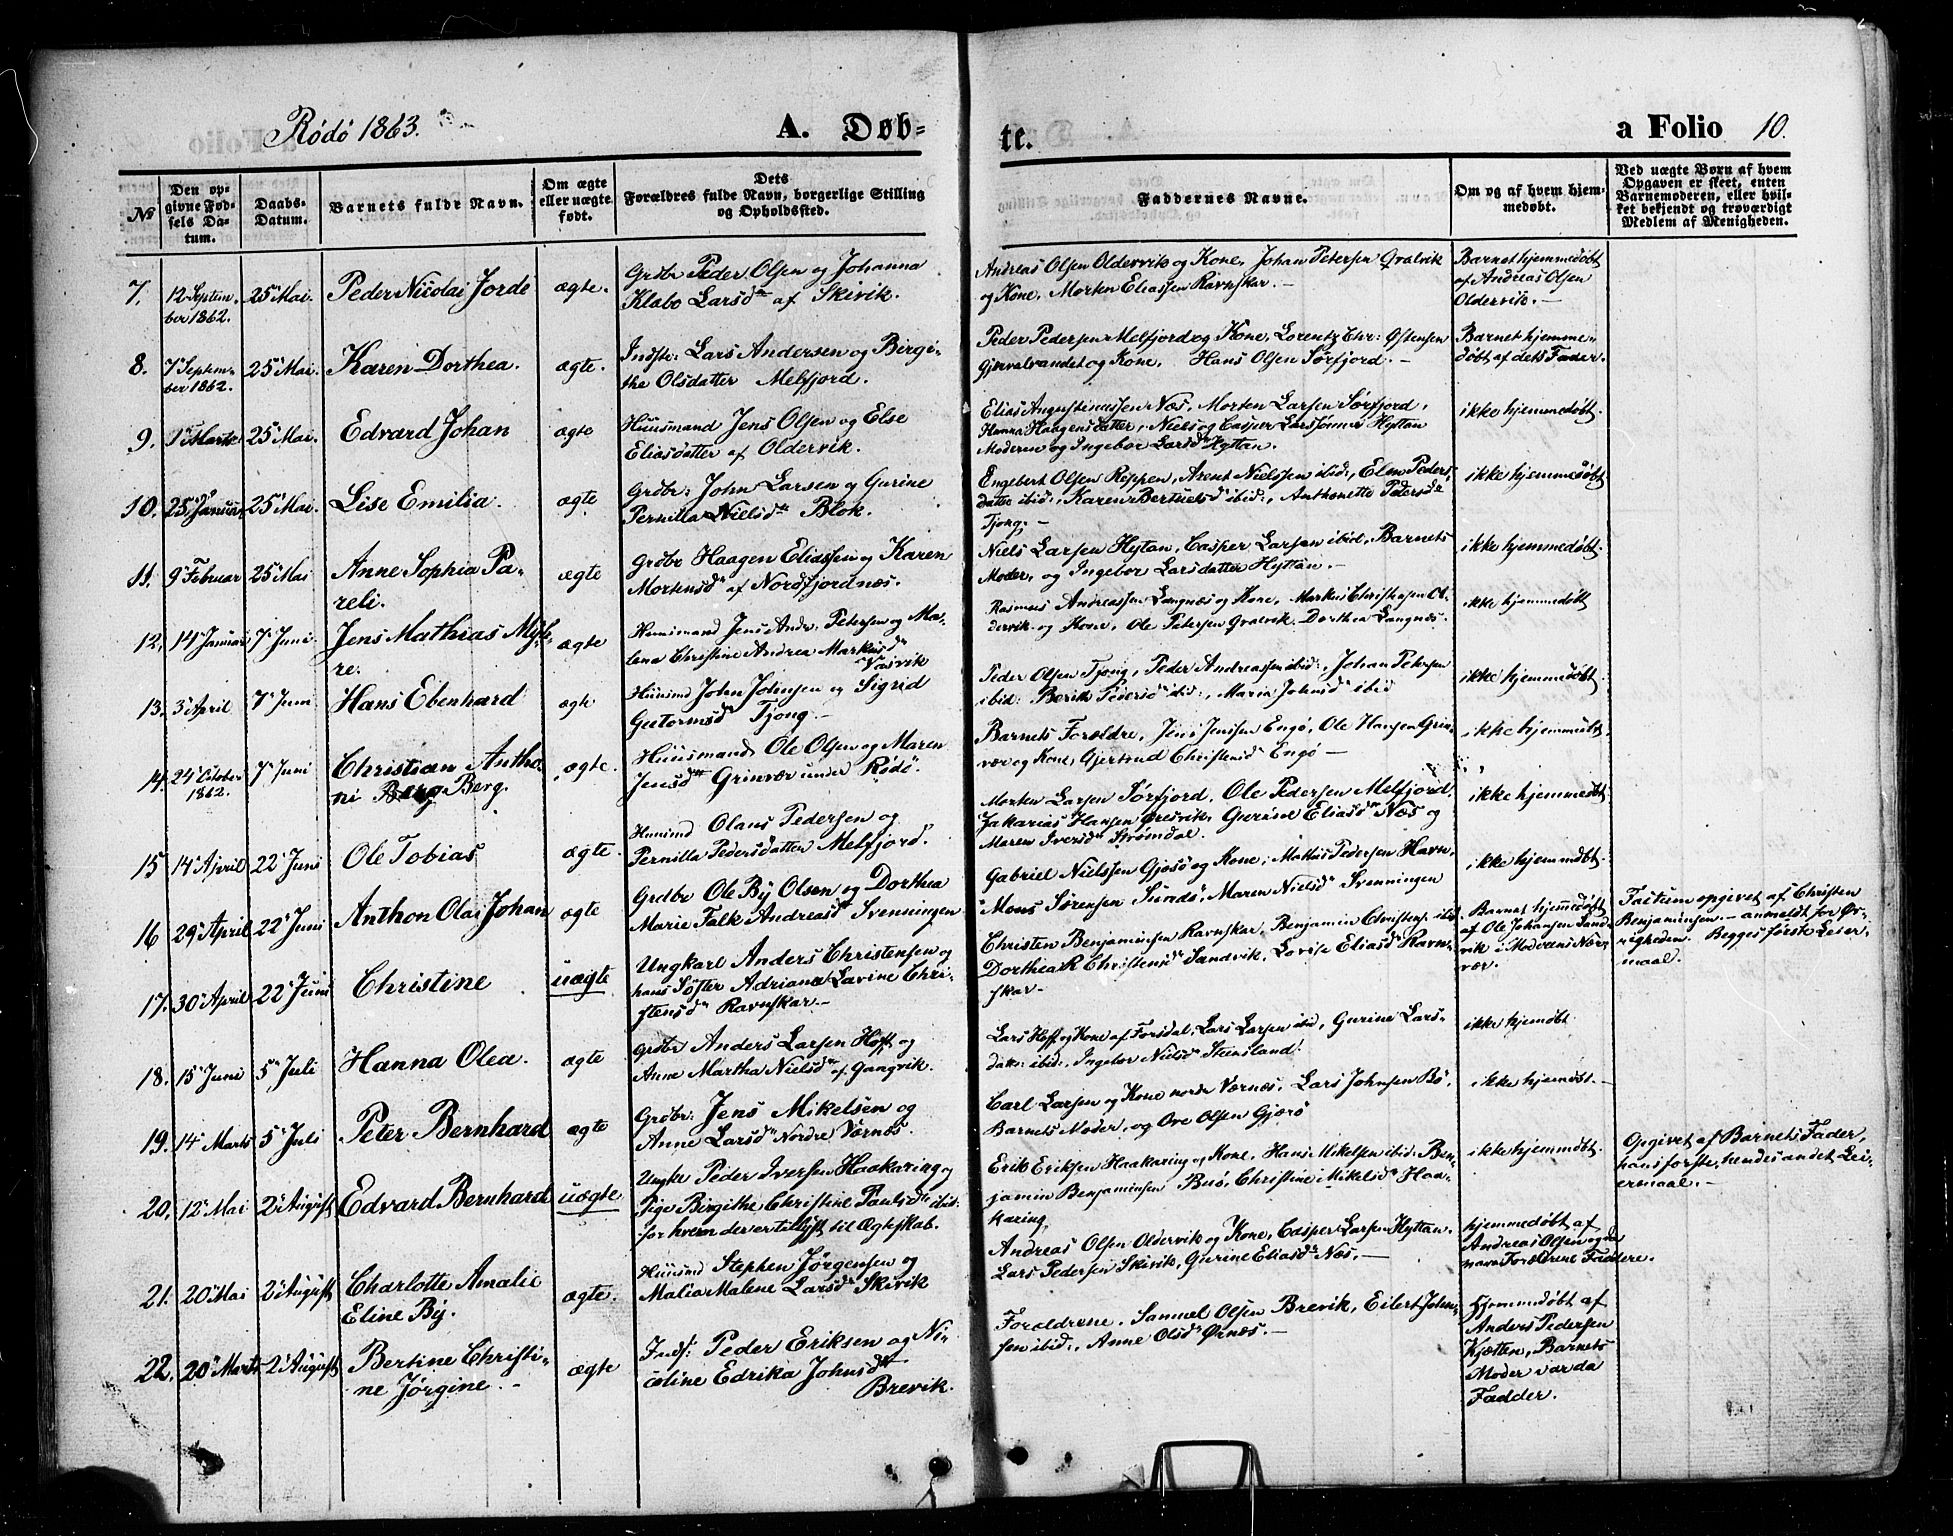 Rödö 1863.
A. Døb-
te.
a Folio 10.
No
Den op-
givne Fød-
sels Da-
tum.
Daabs-
Datum.
Barnets fulde Navn.
Om ægte
eller uægte
født.
Dets
Forældres fulde Navn, borgerlige Stilling
og Opholdssted.
Faddernes Navne.
Om og af hvem hjem-
medøbt.
Ved uægte Børn af hvem
Opgaven er skeet, enten
Barnemoderen, eller hvil-
ket bekjendt og troværdigt
Medlem af Menigheden.
7.
12 Septem-
ber 1862.
25 Mai.
Peder Nicolai Jorde
ægte.
Grdbr Peder Olsen og Johanna
Klabo Larsdtr af Skivik.
Andreas Olsen Oldervik og Kone, Johan Petersen Qvalvik
og Kone, Morten Eliassen Ravnskar.—
Barnet hjemmedöbt
af Andreas Olsen
Oldervik.—
8.
7 Septem-
ber 1862.
25 Mai.
Karen Dorthea.
ægte.
Indste: Lars Andersen og Birgi-
the Olsdatter Melfjord.
Peder Pedersen Melfjord og Kone, Lorentz Chr: Ostensen
Gjervalvandet og Kone. Hans Olsen Sörfjord.—
Barnet hjemme-
döbt af dets Fader.
9.
25 Mai.
Edvard Johan
ægte
Huusmand Jens Olsen og Else
Eliasdatter af Oldervik.
Elias Augustinussen Næs, Morten Larsen Sörfjord,
Hanna Haagensdatter, Niels og Casper Larssönner Hyttan
Moderen og Ingebor Larsd Hyttan.
ikke hjemmedöbt.
10.
25 Januar
25 Mai.
Lise Emilia.
ægte
Grdbr: John Larsen og Gurine
Pernilla Nielsdtr Blok.
Engebert Olsen Reppen, Arent Nielssen ibid:, Elen Peders-
datter ibid:, Karen Berthelsd ibid:, Anthonette Pedersdtr
Tjong.—
ikke hjemmedöbt
11.
9 Februar
25 Mai
Anne Sophia Pa-
reli.
ægte
Grdbr Haagen Eliassen og Karen
Mortensd af Nordfjordnæs.
Niels Larsen Hytan, Casper Larsen ibid, Barnets
Moder, og Ingebor Larsdatter Hyttan.—
ikke hjemmedöbt.
12.
14 Januar
7 Juni
Jens Mathias Myh-
re.
ægte
Huusmand Jens Andr. Petersen og Ma-
lena Christine Andrea Markusd
Vasvik
Rasmus Andreassen Langnæs og Kone, Markus Christensen Ol-
dervik og Kone, Ole Petersen Qvalvik, Dorthea Langnes.
ikke hjemmedöbt
13.
3 April
7 Juni
Hans Ebenhard
ægte
Huusmd John Johnsen og Sigrid
Gutormsd Tjong.—
Peder Olsen Tjong, Peder Andreassen ibid:, Johan Petersen
ibid: Berith Pedersd ibid:, Maria Johnsd ibid
ikke hjemmedöbt.
14.
24 October
1862.
7 Juni
Christian Antho-
ni Berg.
ægte.
Huusmand Ole Olsen og Maren
Jensdtr Grinvær under Rödö.
Barnets Forældre, Jens Jenssen Engö, Ole Hansen Grin-
vær og Kone, Gjertrud Christensd Engö—
ikke hjemmedöbt
15
14 April
22 Juni
Ole Tobias
ægte.
Huusmd Olaus Pedersen og
Pernilla Pedersdatter Melfjord.
Morten Larsen Sörfjord, Ole Pedersen Melfjord,
Zakarias Hansen Öresvik, Gurine Eliasdtr Næs og
Maren Iversd Strömdal.
ikke hjemmedöbt
16
29 April
22 Juni
Anthon Olai Johan
ægte
Grdbr Ole By Olsen og Dorthea
Marie Falk Andreasd Svenningen
Gabriel Nielssen Gjesö og Kone, Mathis Pedersen Havn,
Mons Sörensen Sundö, Maren Nielsd Svenningen
ikke hjemmedöbt.
17.
30 April
22 Juni
Christine
uægte
Ungkarl Anders Christensen og
hans Söster Adriana Lavine Chri-
stensd Ravnskar—
Christen Benjaminsen Ravnskar, Benjamin Christens. ibid
Dorthea R Christensd Sandvik, Lovise Eliasd Ravn-
skar—
Barnet hjemmedöbt
af Ole Johansen Sand-
vik i Moderens Nær-
vær.
Factum opgivet af Christen
Benjaminsen.— anmeldt for Øv-
righeden. Begges første Leier-
maal.
18.
15 Juni
5 Juli
Hanna Olea.
ægte
Grdbr Anders Larsen Hoff og
Anne Martha Nielsdtr af Gaasvik.
Lars Hoff og Kone af Forsdal, Lars Larsen ibid, Gurine Lars-
datter ibid:, Ingebor Nielsd Steensland.
ikke hjemöbt
19.
14 Marts
5 Juli
Peter Bernhard
ægte
Grdbr: Jens Mikelsen og
Anne Larsd Nordre Værnæs.
Carl Larsen og Kone nordre Værnæs, Lars Johnsen Bö,
Barnets Moder, og Ove Olsen Gjærö
ikke hjemdöbt.—
20.
12 Mai
2 August
Edvard Bernhard
uægte
Ungkr Peder Iversen Haakaring og
Pige Birgithe Christine Paulsdtr ibid:
for hvem der er tillyst til Ægteskab.
Erik Eriksen Haakaring og Kone, Hans Mikelsen ibid: Ben-
jamin Benjaminsen Buö, Christine Mikelsd Haa-
karing.
ikke hjemmdöbt.
Opgivet af Barnets Fader,
hans første, hendes andet Lei-
ermaal.—
21.
20 Mai
2 August
Charlotte Amalie
Eline By.
ægte.
Huusmd Stephen Jörgensen og
Malia Malene Larsd Skivik
Andreas Olsen Oldervik og Kone, Casper Larsen Hyttan,
Lars Pedersen Skivik, Gurine Eliasdtr Næs.—
hjemmedöbt af
Andreas Olsen
Forældrene Faddere.
22.
20 Marts
2 August
Bertine Christi-
ne Jörgine.—
ægte
Inds: Peder Eriksen og Ni-
coline Edrika Johnsdtr
Brevik.
Forældrene, Samuel Olsen Brevik, Eilert John-
sen ibid:, Anne Olsd Ørnæs.—
Hjemmedöbt af
Anders Pedersen
Kjetten, Barnets
Moder var da
Fadder.